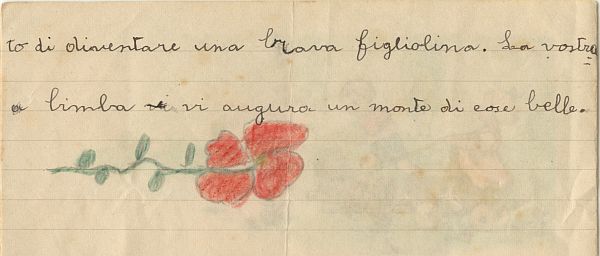 to di diventare una brava figliolina. La vostra
a bimba vi augura un monte di cose belle.